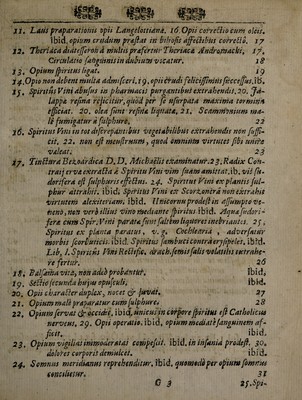 11. Laus præparationis opii Langelottianæ. 16 Opii correctio cum oleis,
ibid. opium crudum præstat in biliosis affectibus correcto. 17
12. Theriaca diatesseron à multis præfertur Theriacæ Andromachi, 17.
Circulatio sanguinis in dubium vocatur. 18
13. Opium spiritus ligat. 19
14. Opio non debent multa admisceri, 19, epicètrudi felicissimis successus, ib.
15. Spiritûs Vini abusus in pharmaciæ purgantibus extrahendis. 20. Ja-
lappæ resina rejicitur, quod per se usurpata maxima tormina
efficiat. 20. olea sunt resina liquata, 21. Scammonium ma-
lè fumigatur à sulphure, 22
16. Spiritus Vini in tot discrepantibus vegetabilibus extrahendis non suffi-
cit, 22. non est menstruum, quod omnium virtutes sibi unire
valeat; 23
17. Tinctura Bezoardica D.D. Michaëlis examinatur. 23. Radix Con-
trajervæ extracta à Spiritu Vini vim suam amittat, ib. vis su-
dorifera est sulphuris effectus. 24. Spiritus Vini ex plantis sul-
phur abradit. ibid. Spiritus Vini ex Scorzonera non extrahit
virtutem alexiteriam, ibid. Unicornu prodest in assumpto ve-
neno, non verò illius vino mediante spiritus ibid. Aqua sudori-
fera cum Spir. Vini parata sunt saltem liquores inebriantes. 25.
Spiritus ex planta paratus, v. g. Cochlearia, adversatur
morbis scorbuticis. ibid. Spiritus sambuci contra erysipelas. ibid.
Lib. I. Spiritûs Vini Rectific. drach. semis salis volatilis extrahe-
re fertur. 26
18. Balsama vitæ, non adeò probantur. ibid.
19. Sectio secunda hujus opusculi. ibid.
20. Opii character duplex, nocet & juvat. 27
21. Opium malè præparatur cum sulphure. 28
22. Opium servat & occidit, ibid. unicus in corpore spiritus est Catholicus
nerveus, 29. Opii operatio. ibid. opium mediatè sanguinem af-
ficit. ibid.
23. Opium vigilias immoderatas compescit. ibid. in insania prodest. 30.
dolores corporis demulcet. ibid.
24. Somnus meridianus reprehenditur, ibid. quomodò per opium somnus
concilietur. 31
G 3 25. Spi-